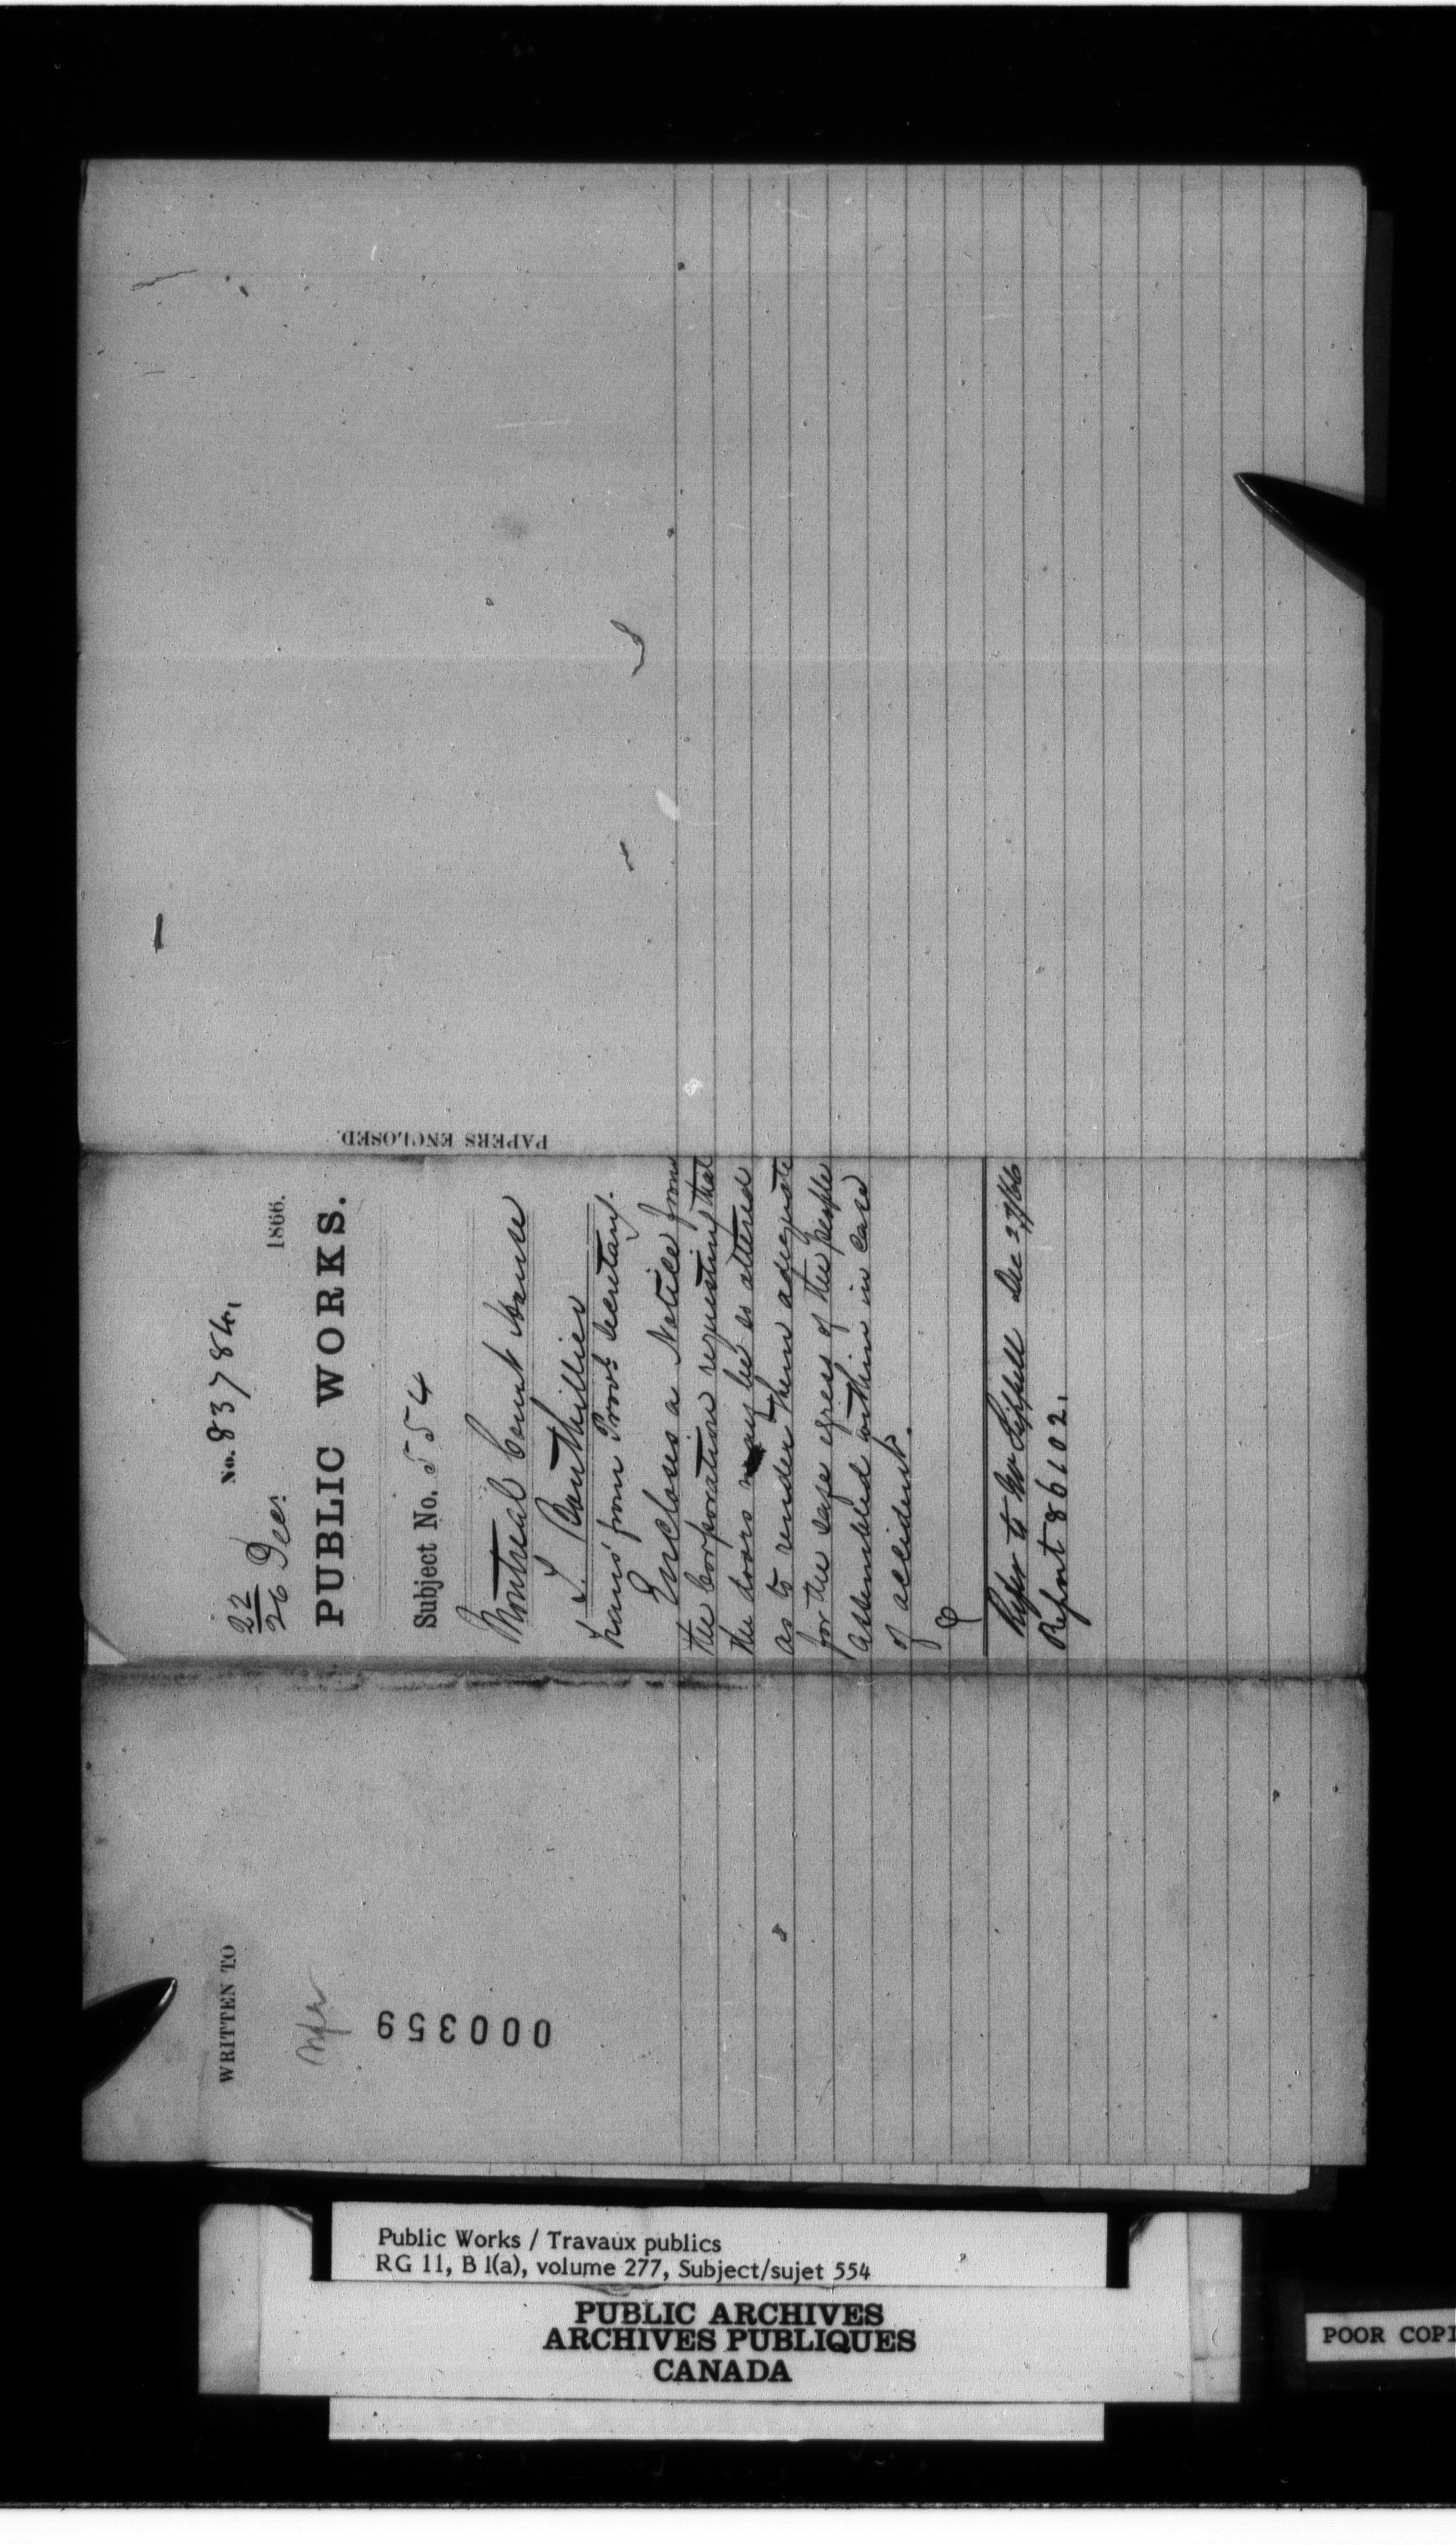 22
26 Decr
No. 83784,
1866.
PUBLIC WORKS.
Subject No. 554
Montreal Court House
L. Bouthillier
trans' from Provl. Secretary.
Encloses a Notice from
the Corporation requesting that
the doors may be so altered
as to render them adequate
for the safe egress of the people
assembled within in case
of accident.
Refer to Mr Sippell Dec 27/66
Report 86102.
PAPERS ENCLOSED.
WRITTEN TO
000359
Public Works / Travaux publics
RG 11, B 1(a), volume 277, Subject/sujet 554
PUBLIC ARCHIVES
ARCHIVES PUBLIQUES
CANADA
POOR COPI